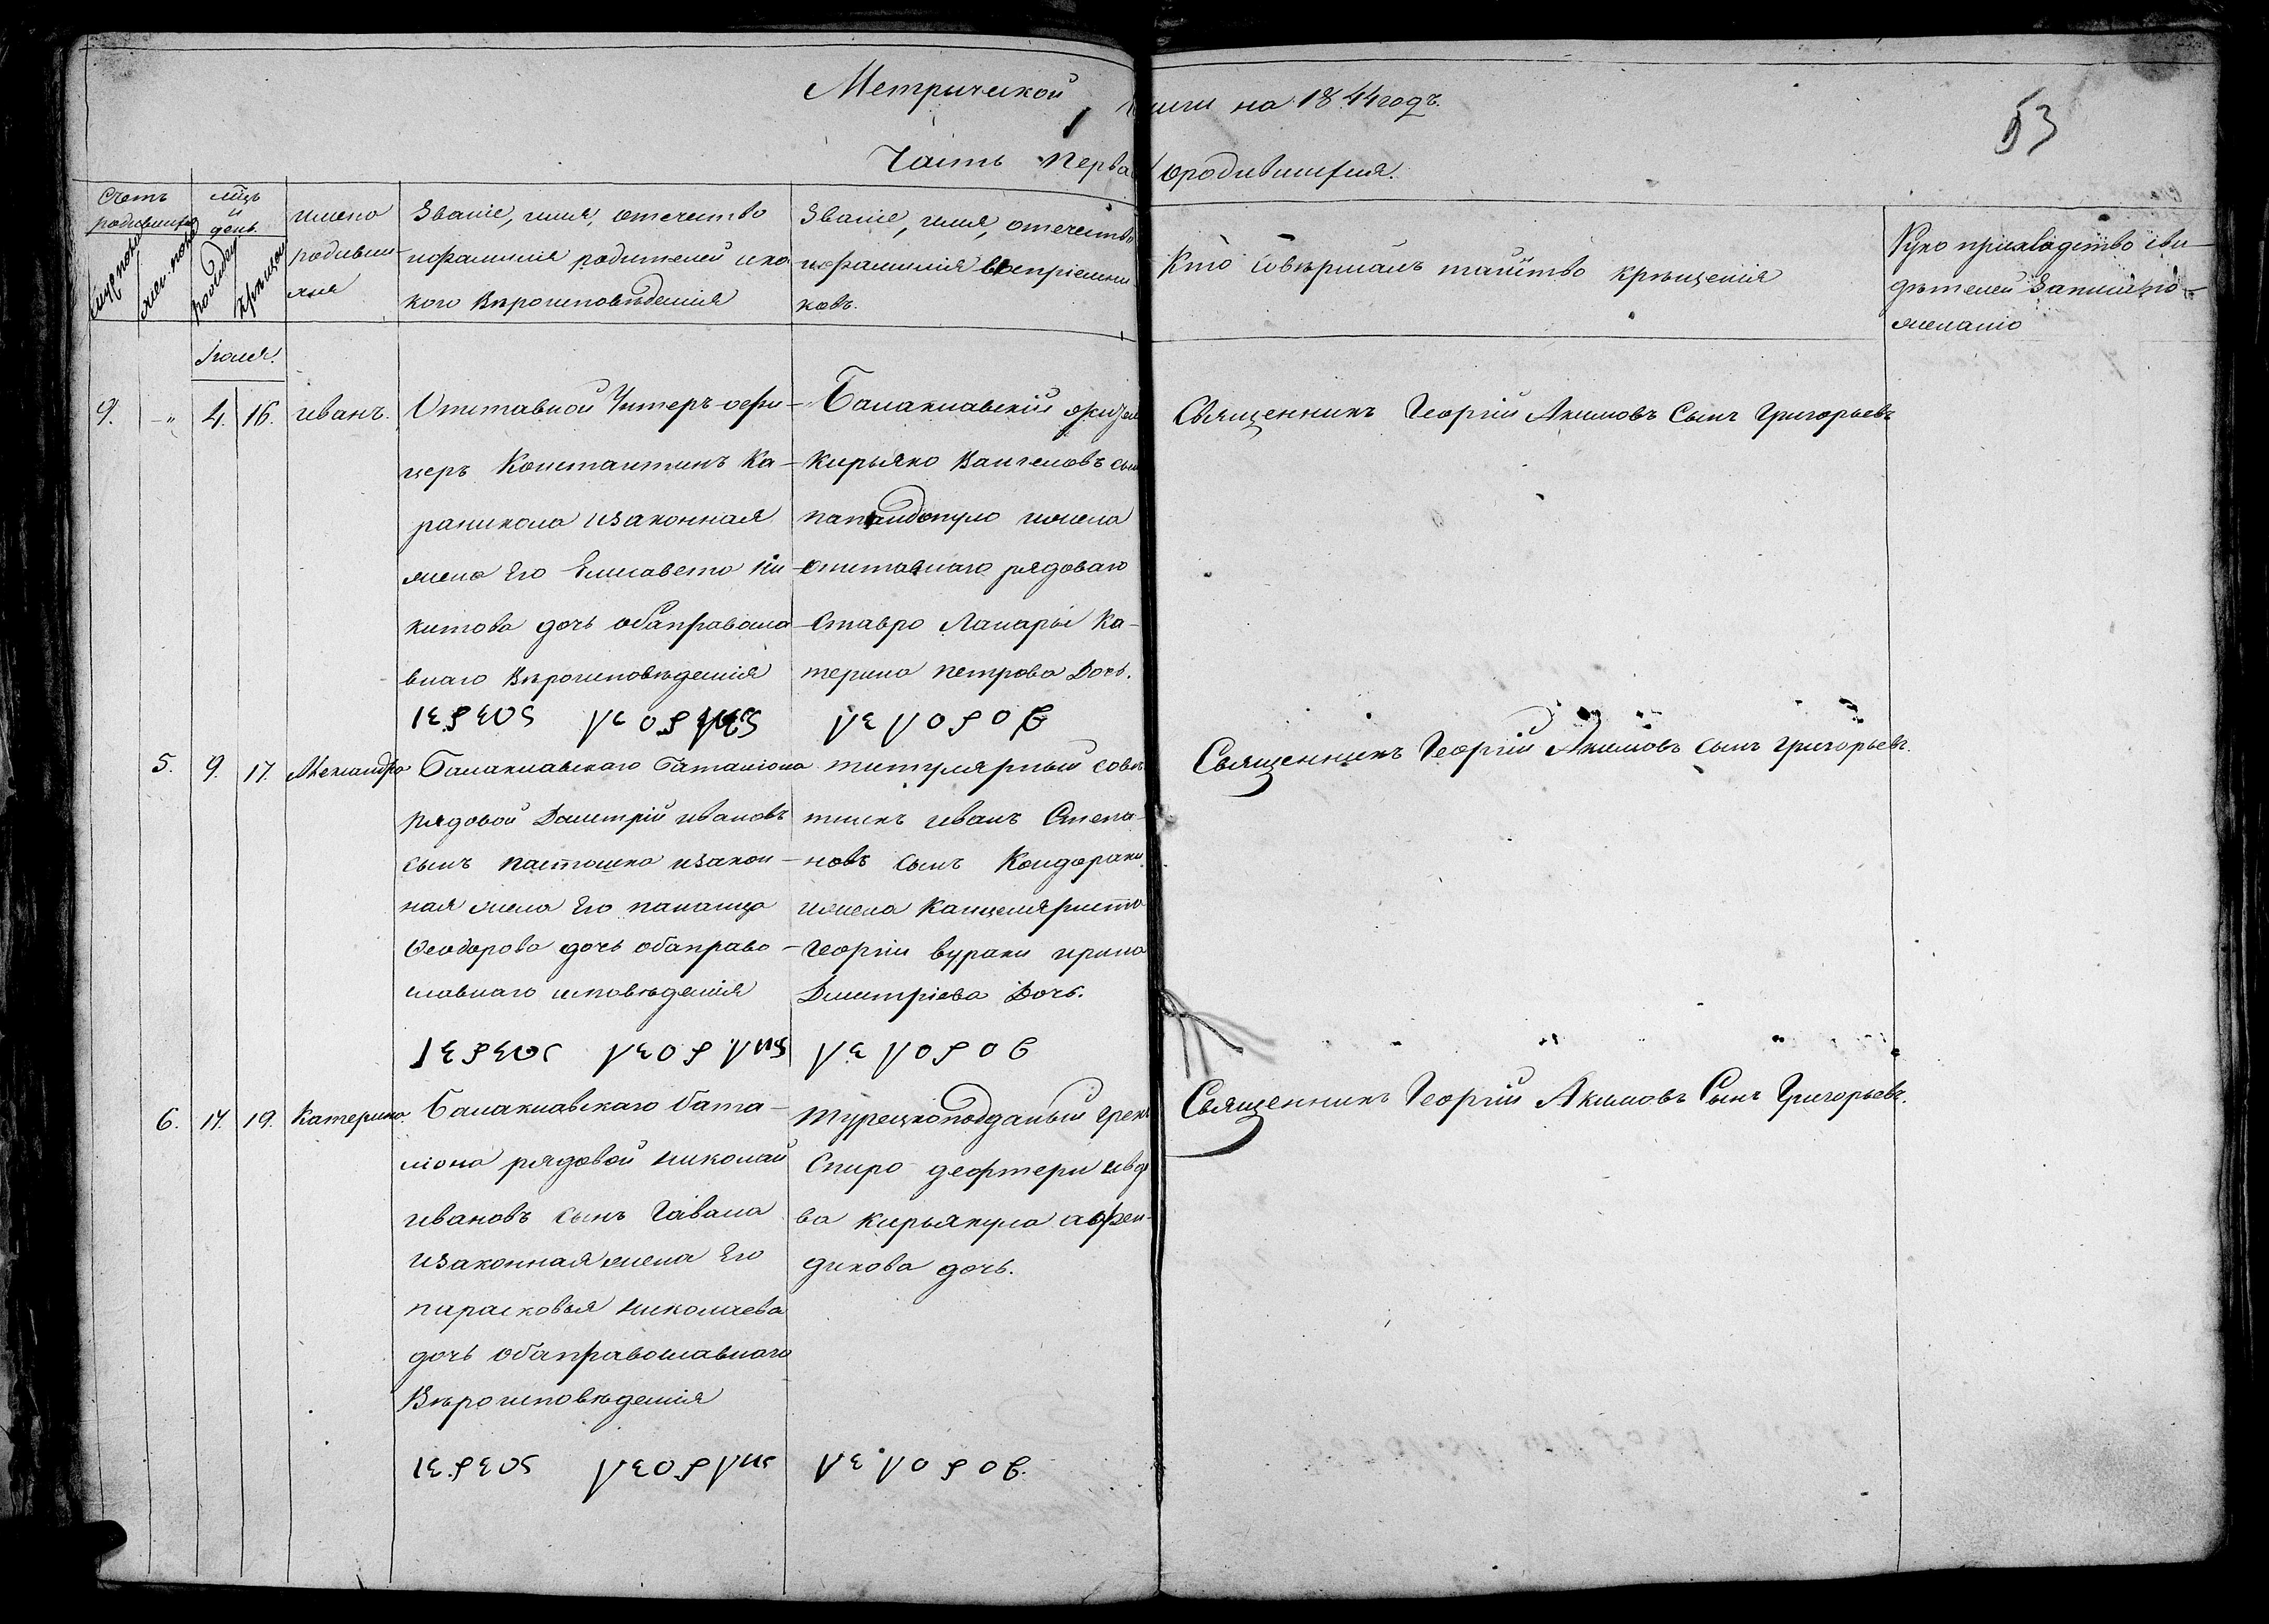 Метрической книги на 1844 годъ.
53
Часть Первая ородившихся.
Счетъ родившихся
мцъ и день
имено родивши хся
Званіе, имя, отечество
ифамилія родителей ика
кого Вѣроисповѣденія
Званіе, имя, отечество
ифамилія воспріемни
ковъ.
Кто совѣршалъ таинство крѣщенія
Руко прикладство сви-
дѣтелей записи по
желанію
Іюля.
9. -„ 4. 16. иванъ.
Отставной Унтеръ-офи-
церъ Константинъ Ка-
раникола изаконная
жена Его Елисавета Ни
китова дочь обаправосла
внаго Вѣроисповѣденія
Балаклавскій жител
Кирьяко Вангеловъ сын
папандопуло ижена
Отставнаго рядоваго
Ставро Ка-
терина петрова Дочь.
Священникъ Георгій Акимовъ Сынъ Григорьевъ
5. 9. 17. Александра
Балаклавскаго баталіона
Рядовой Дмитрій ивановъ
сынъ изакон-
ная жена Его
Феодорова дочь обаправо-
славнаго исповѣденія
титулярный совѣ
тникъ иванъ Степа-
новъ сынъ Кондораки
ижена Канцеляриста
Георгіи вураки ирина
Дмитріева Дочь.
Священникъ Георгій Акимовъ сынъ григорьевъ.
6. 17. 19. Катерина.
Балаклавскаго бата-
ліона рядовой николай
ивановъ сынъ Гавала
изаконная жена Его
парасковья николаева
дочь обаправославнаго
Вѣроисповѣденія
Турецкоподданый грекъ
Спиро дефтери ивдо
ва кирьякула афен-
дикова дочь.
Священникъ Георгій Акимовъ Сынъ Григорьевъ.